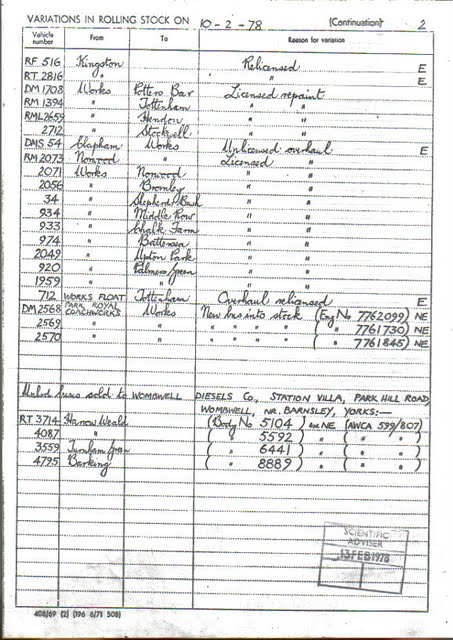 VARIATIONS IN ROLLING STOCK ON 10-2-78 (Continuation) 2
Vehicle number From To Reason for variation
RF 516 Kingston Relicensed E
RT 2816 " " E
DM 1708 Works Potters Bar Licensed repaint
RM 1394 " Tottenham " "
RML 2659 " Hendon " "
2712 " Stockwell " "
DMS 54 Clapham Works Unlicensed overhaul E
RM 2073 Norwood " Licensed "
2071 Works Norwood " "
2056 " Bromley " "
34 " Shepherd's Bush " "
934 " Middle Row " "
933 " Chalk Farm " "
974 " Battersea " "
2049 " Upton Park " "
920 " Palmers Green " "
1959 " " " "
712 WORKS FLOAT Tottenham Overhaul relicensed E
DM 2568 PARK ROYAL COACHWORKS Works New bus into stock (Eng No 7762099) NE
2569 " " " " " " ( " 7761730) NE
2570 " " " " " " ( " 7761845) NE
Unlicd buses sold to WOMBWELL DIESELS Co., STATION VILLA, PARK HILL ROAD,
WOMBWELL, NR. BARNSLEY, YORKS:—
RT 3714 Harrow Weald (Body No 5104) ex NE (AWCA 599/807)
4087 " ( " 5592 ) " ( " " )
3559 Turnham Green ( " 6441 ) " ( " " )
4795 Barking ( " 8889 ) " ( " " )
SCIENTIFIC
ADVISER
13 FEB 1978
408/69 (2) (196 6/71 508)